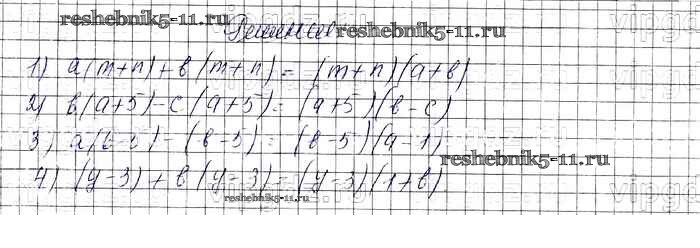 reshebnik5-11.ru
Решение
reshebnik5-11.ru
1) a(m+n)+b(m+n)=(m+n)(a+b)
2) b(a+5)-c(a+5)=(a+5)(b-c)
3) a(b-5)-(b-5)=(b-5)(a-1)
reshebnik5-11.ru
4) (y-3)+b(y-3)=(y-3)(1+b)
reshebnik5-11.ru